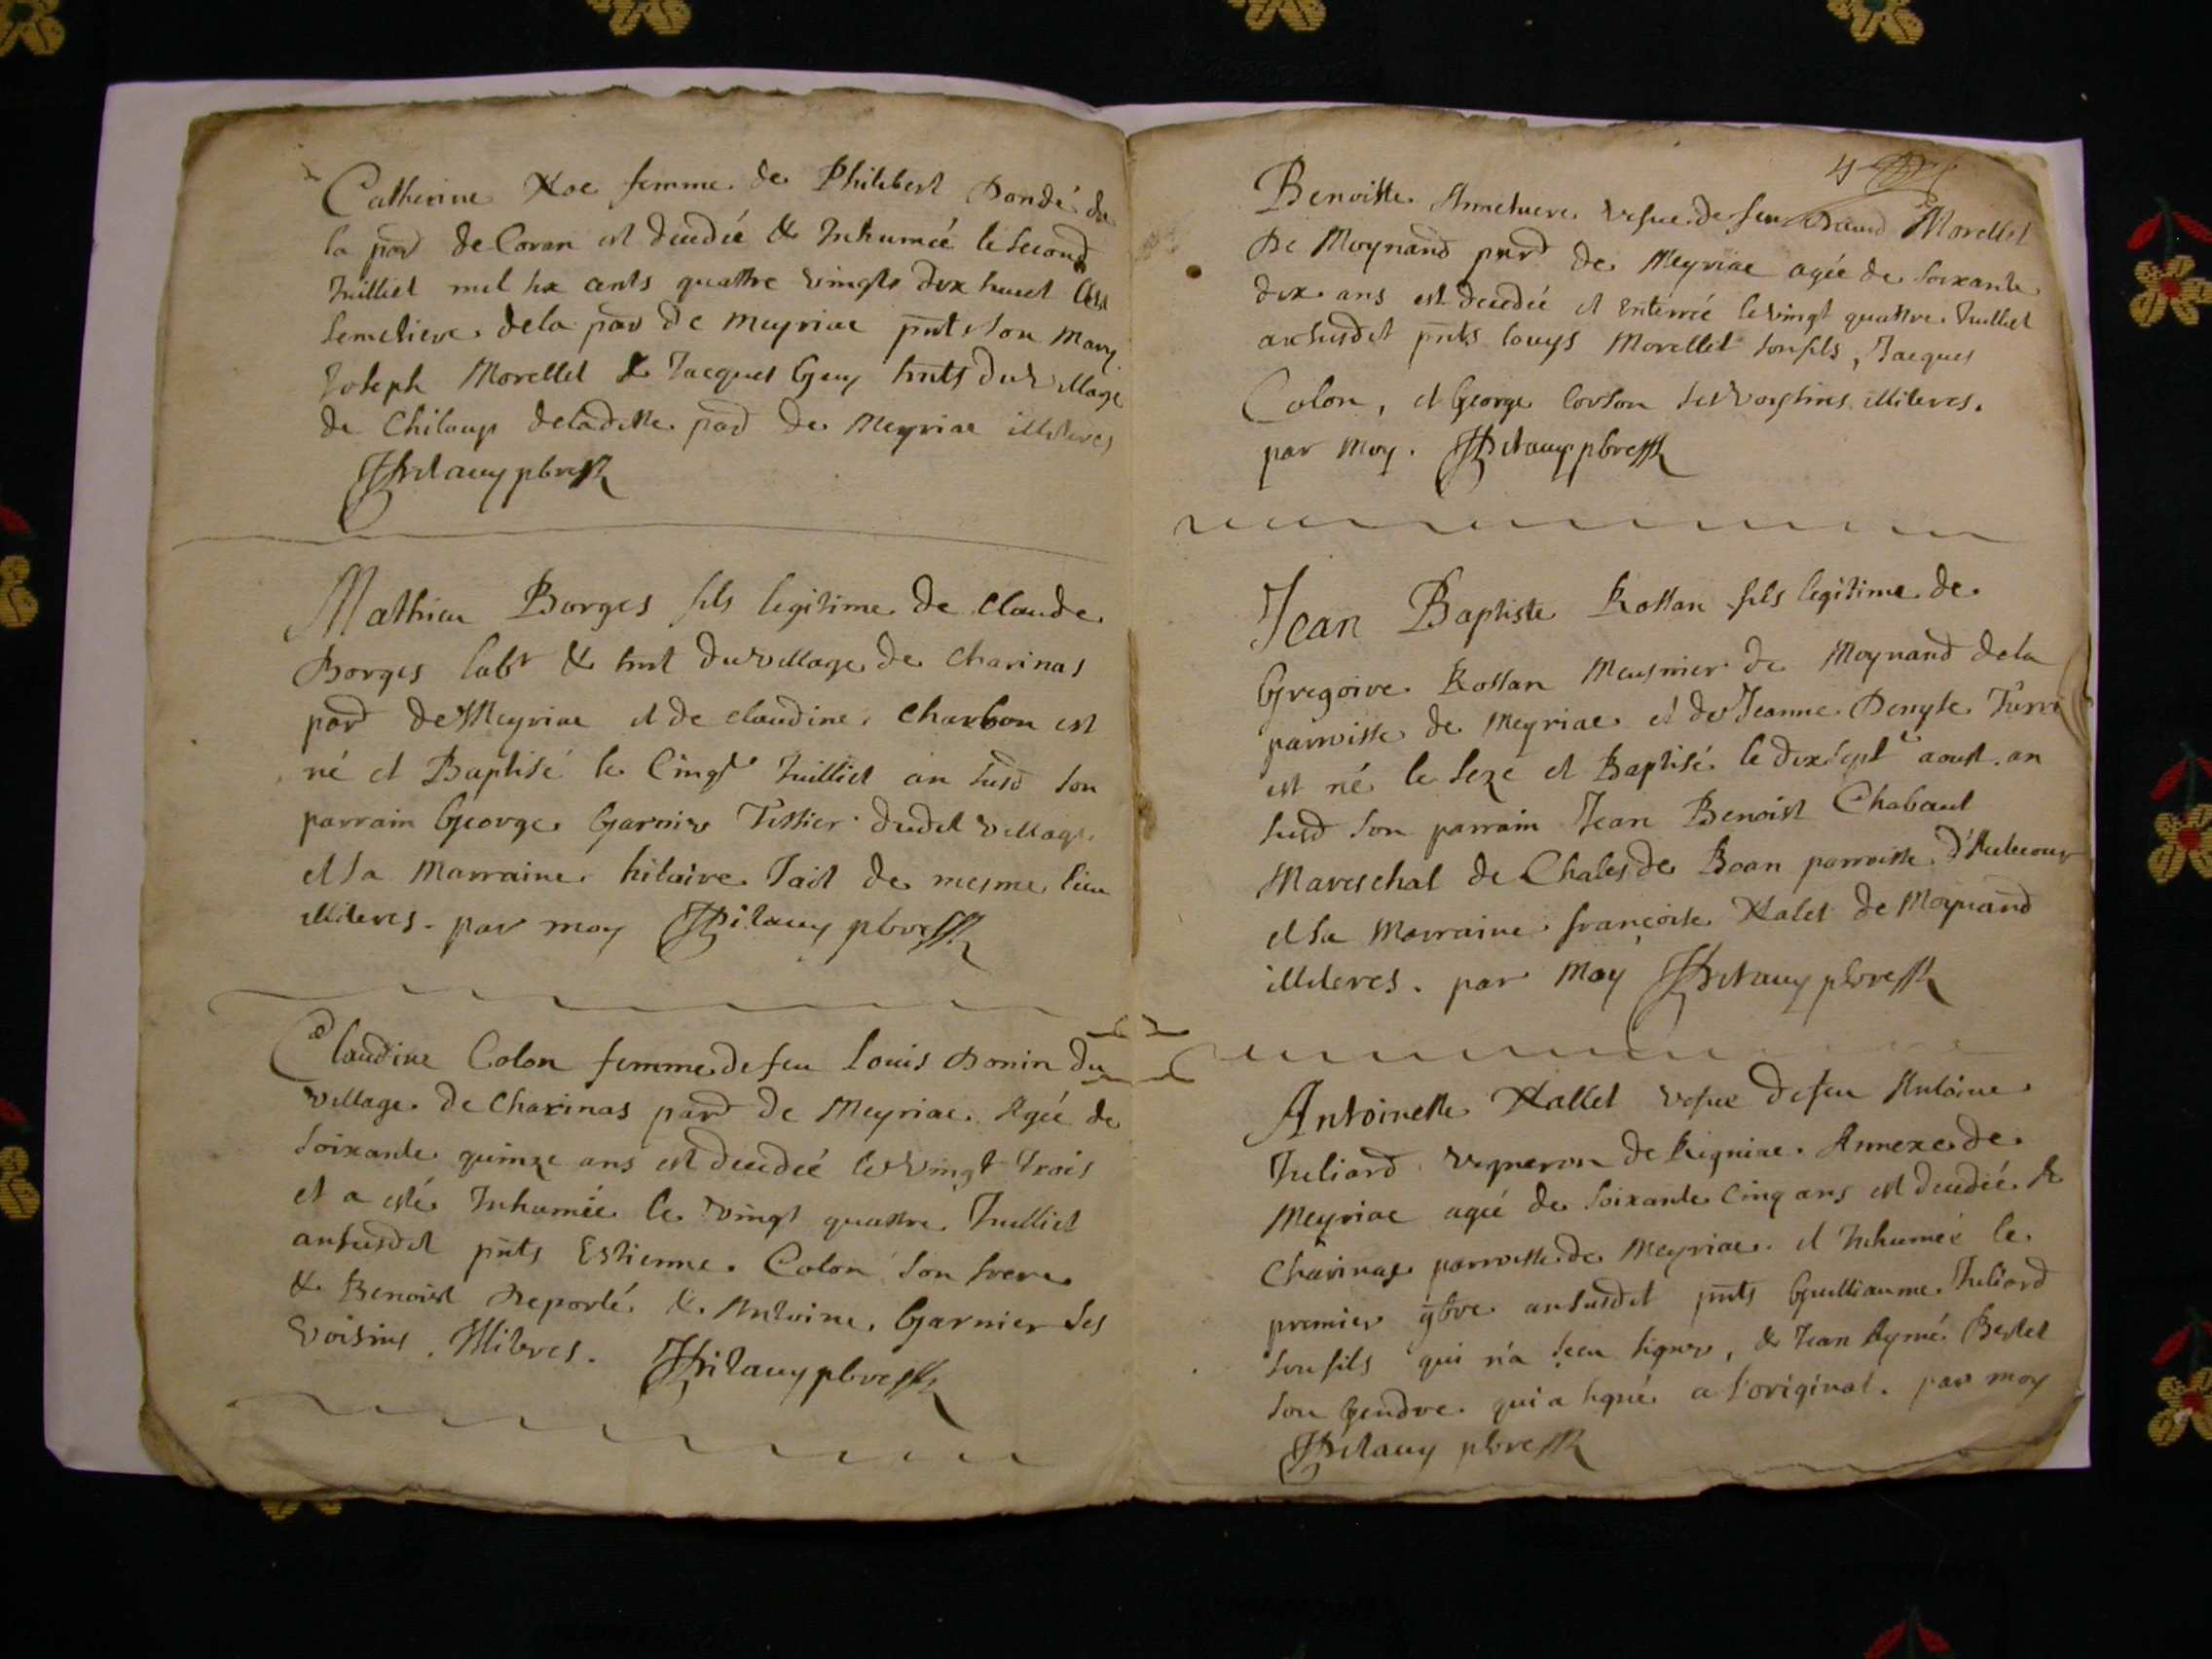 Catherine femme de Philibert Dondé de
la par de Coran est decedée & Inhumée le second
Juilliet mil six cents quattre vingts dix huict
semetiere de la par de meyriac pnts son mary
Joseph Morellet & Jacques Guy hnts du village
de Chiloup deladitte par de Meyriac illiteres
pbre
Mathieu Borges fils legitime de Claude
Borges labr & hnt du village de charinas
par de Meyriac et de claudine charbon est
né et Baptisé le Cinqe Juilliet an susd son
parrain George Garnier Tissier dudit village
et sa marraine hilaire Tait de mesme lieu
illiteres. par moy pbre
Claudine Colon femme de feu Louis Donin du
village de Charinas par de Meyriac Agée de
soixante quinze ans est decedée le vingt trois
et a esté Inhumée le vingt quattre Juilliet
ansusdit pnts Estienne Colon son frere
& Benoist Reporté & Antoine Garnier ses
voisins. Illiteres. pbre
4
Benoitte vefue de feu Morellet
De Moynand par de Meyriac agée de soixante
dix ans est decedée et enterrée le vingt quattre Juilliet
ansusdit pnts louys Morellet son fils, Jacques
Colon, et George Corson ses voysins illiteres.
par moy. pbre
Jean Baptiste Rossan fils legitime de
Gregoire Rossan Meusnier de Moynand dela
parroisse de Meyriac et de Jeanne Denyse
est né le seze et Baptisé le dixsepte aoust. an
susd son parrain Jean Benoist Chabaut
Mareschal de Chales de Boan parroisse
et sa marraine françoise de Moynand
illiteres. par moy pbre
Antoinette vefue de feu Antoine
Juliard vigneron de Rigniac Annexe de
Meyriac agée de soixante cinq ans est decedée &
Charinas parroisse de Meyriac et Inhumée le
premier 9bre ansusdit pnts Guilliaume Juliard
son fils qui n'a sceu signer, & Jean Aymé Bertet
son Gendre qui a signé a l'original. par moy
pbre